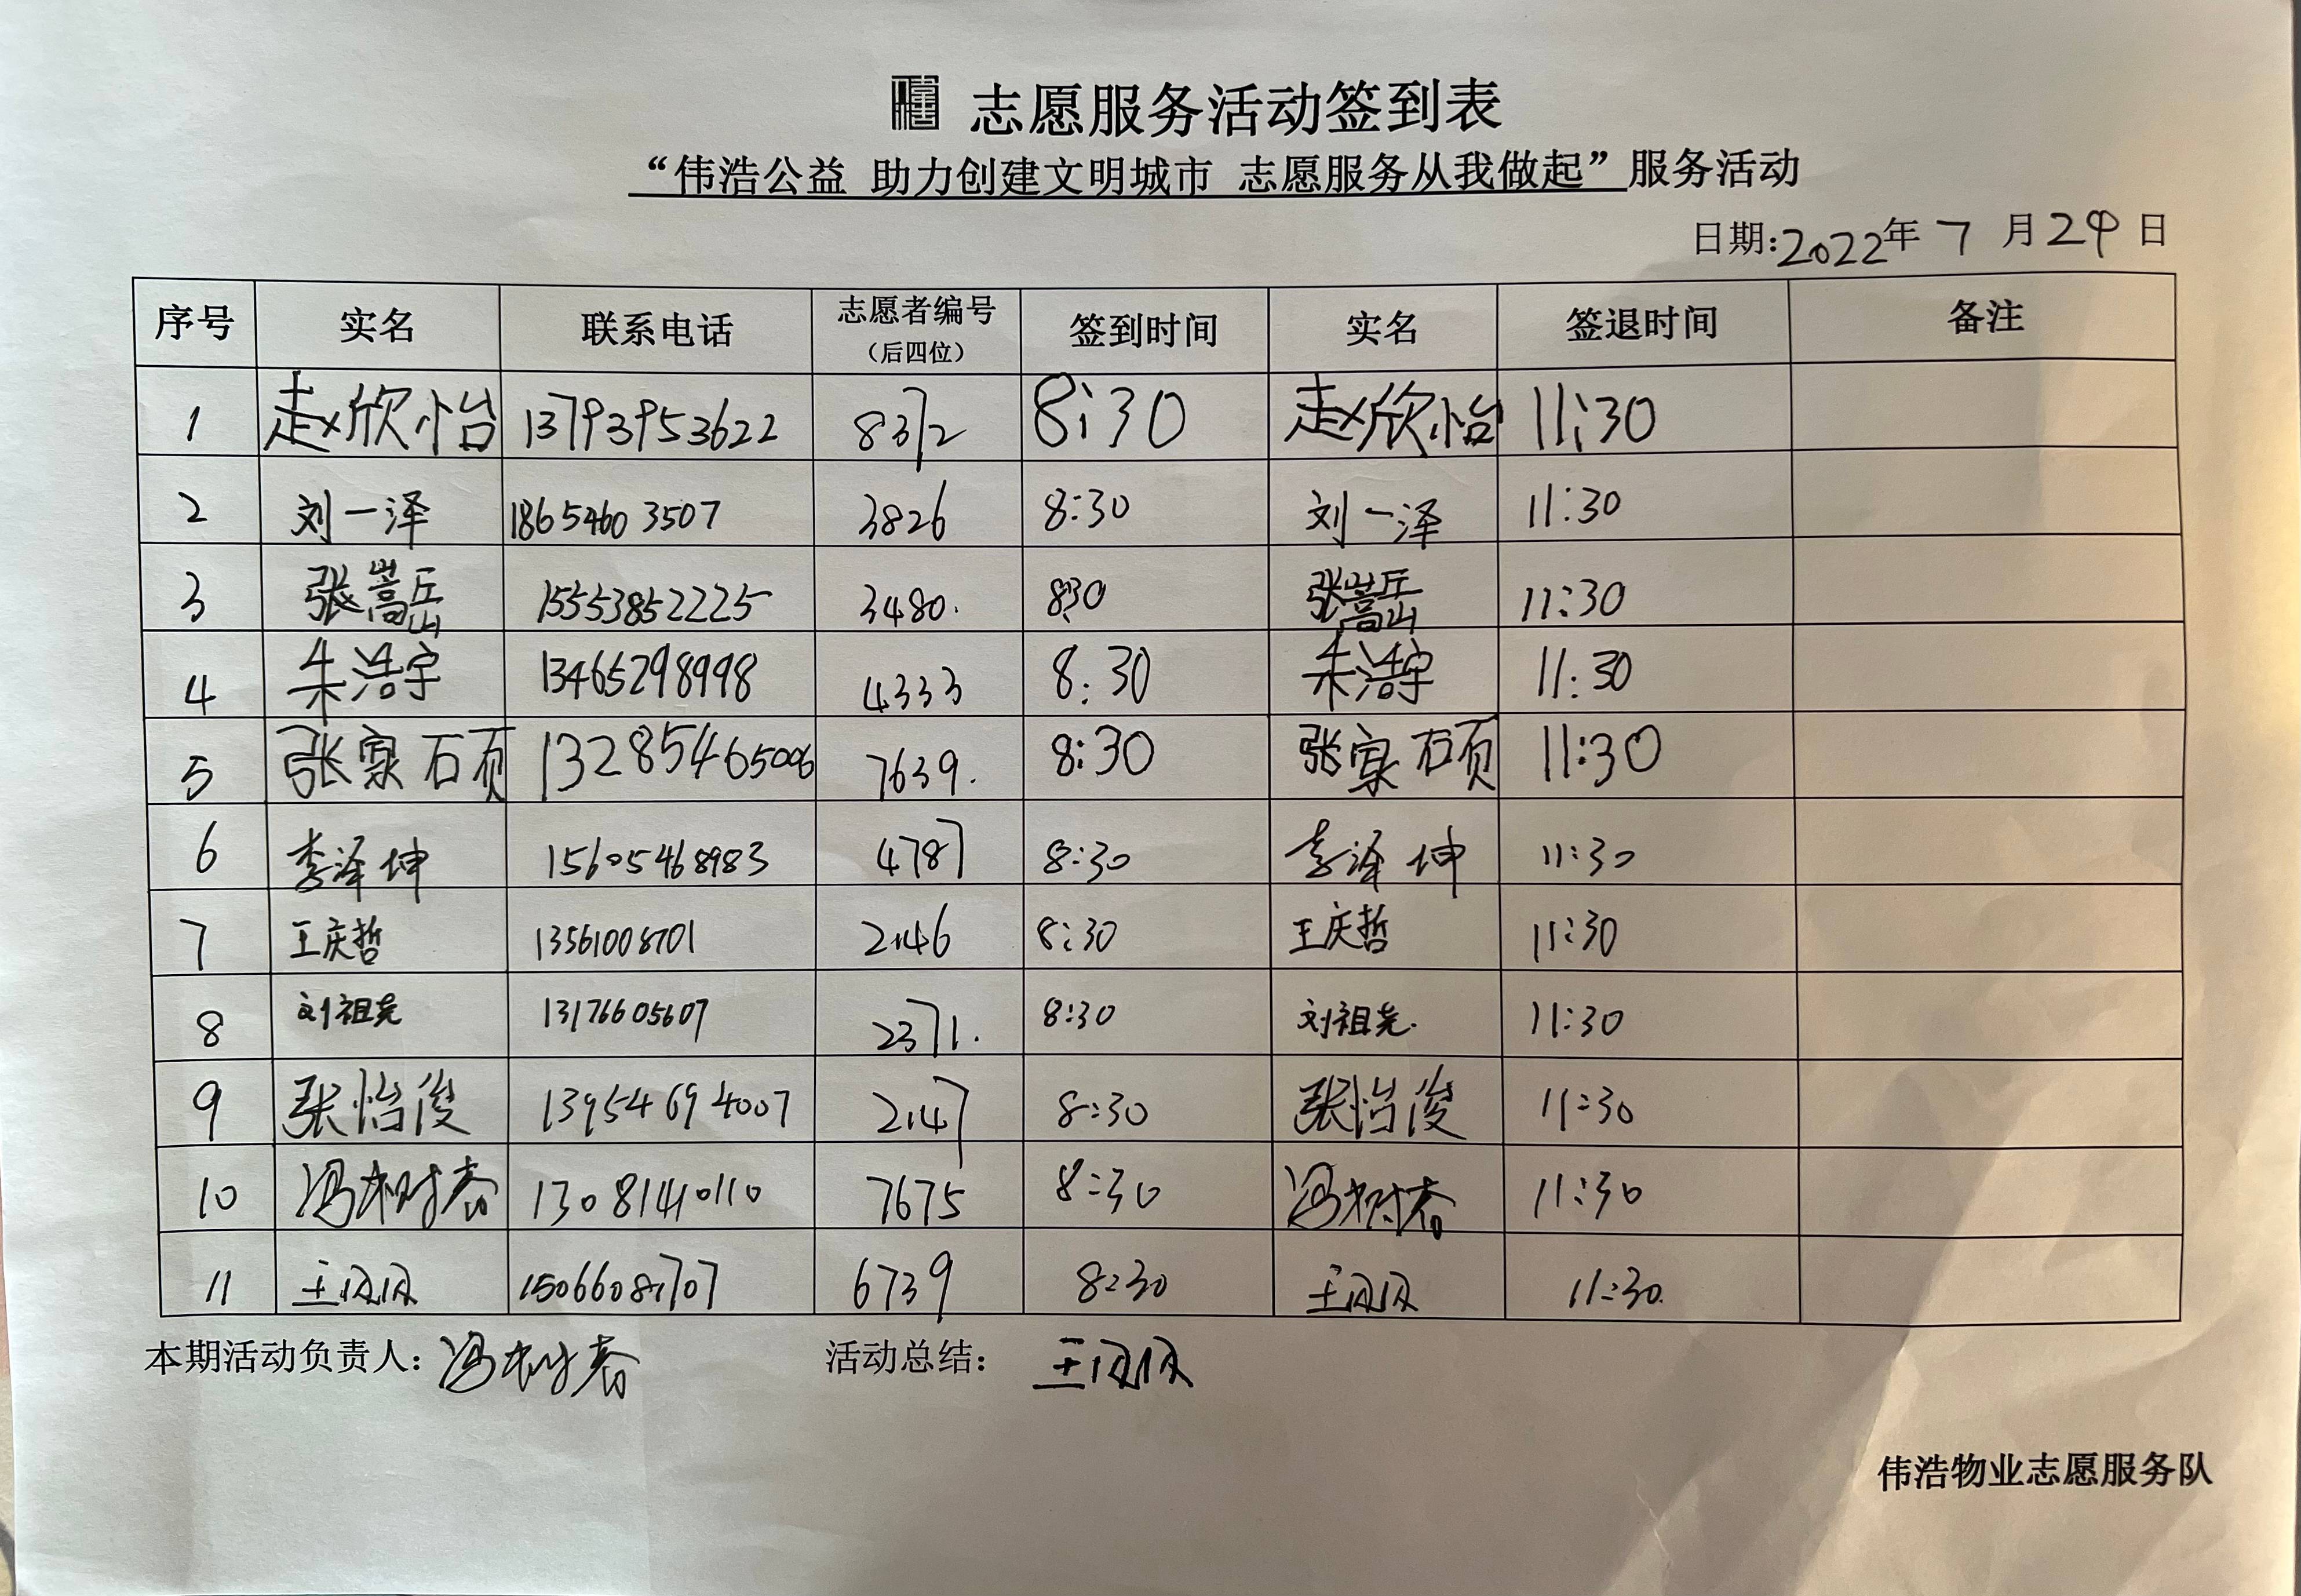 志愿服务活动签到表
“伟浩公益 助力创建文明城市 志愿服务从我做起”服务活动
日期:2022年7月29日
序号 实名 联系电话 志愿者编号（后四位） 签到时间 实名 签退时间 备注
1 赵欣怡 13793953622 8372 8:30 赵欣怡 11:30
2 刘一泽 18654603507 3826 8:30 刘一泽 11:30
3 张嵩岳 15553852225 3480. 8:30 张嵩岳 11:30
4 朱浩宇 13465298998 4333 8:30 朱浩宇 11:30
5 张家硕 13285465006 7639. 8:30 张家硕 11:30
6 李泽坤 15605468983 4787 8:30 李泽坤 11:30
7 王庆哲 13561008701 2146 8:30 王庆哲 11:30
8 刘祖尧 13176605607 2371. 8:30 刘祖尧. 11:30
9 张怡俊 13954694007 2147 8:30 张怡俊 11:30
10 冯树春 13081410110 7675 8:30 冯树春 11:30
11 王 15066081707 6739 8:30 王 11:30.
本期活动负责人：冯树春 活动总结： 王
伟浩物业志愿服务队